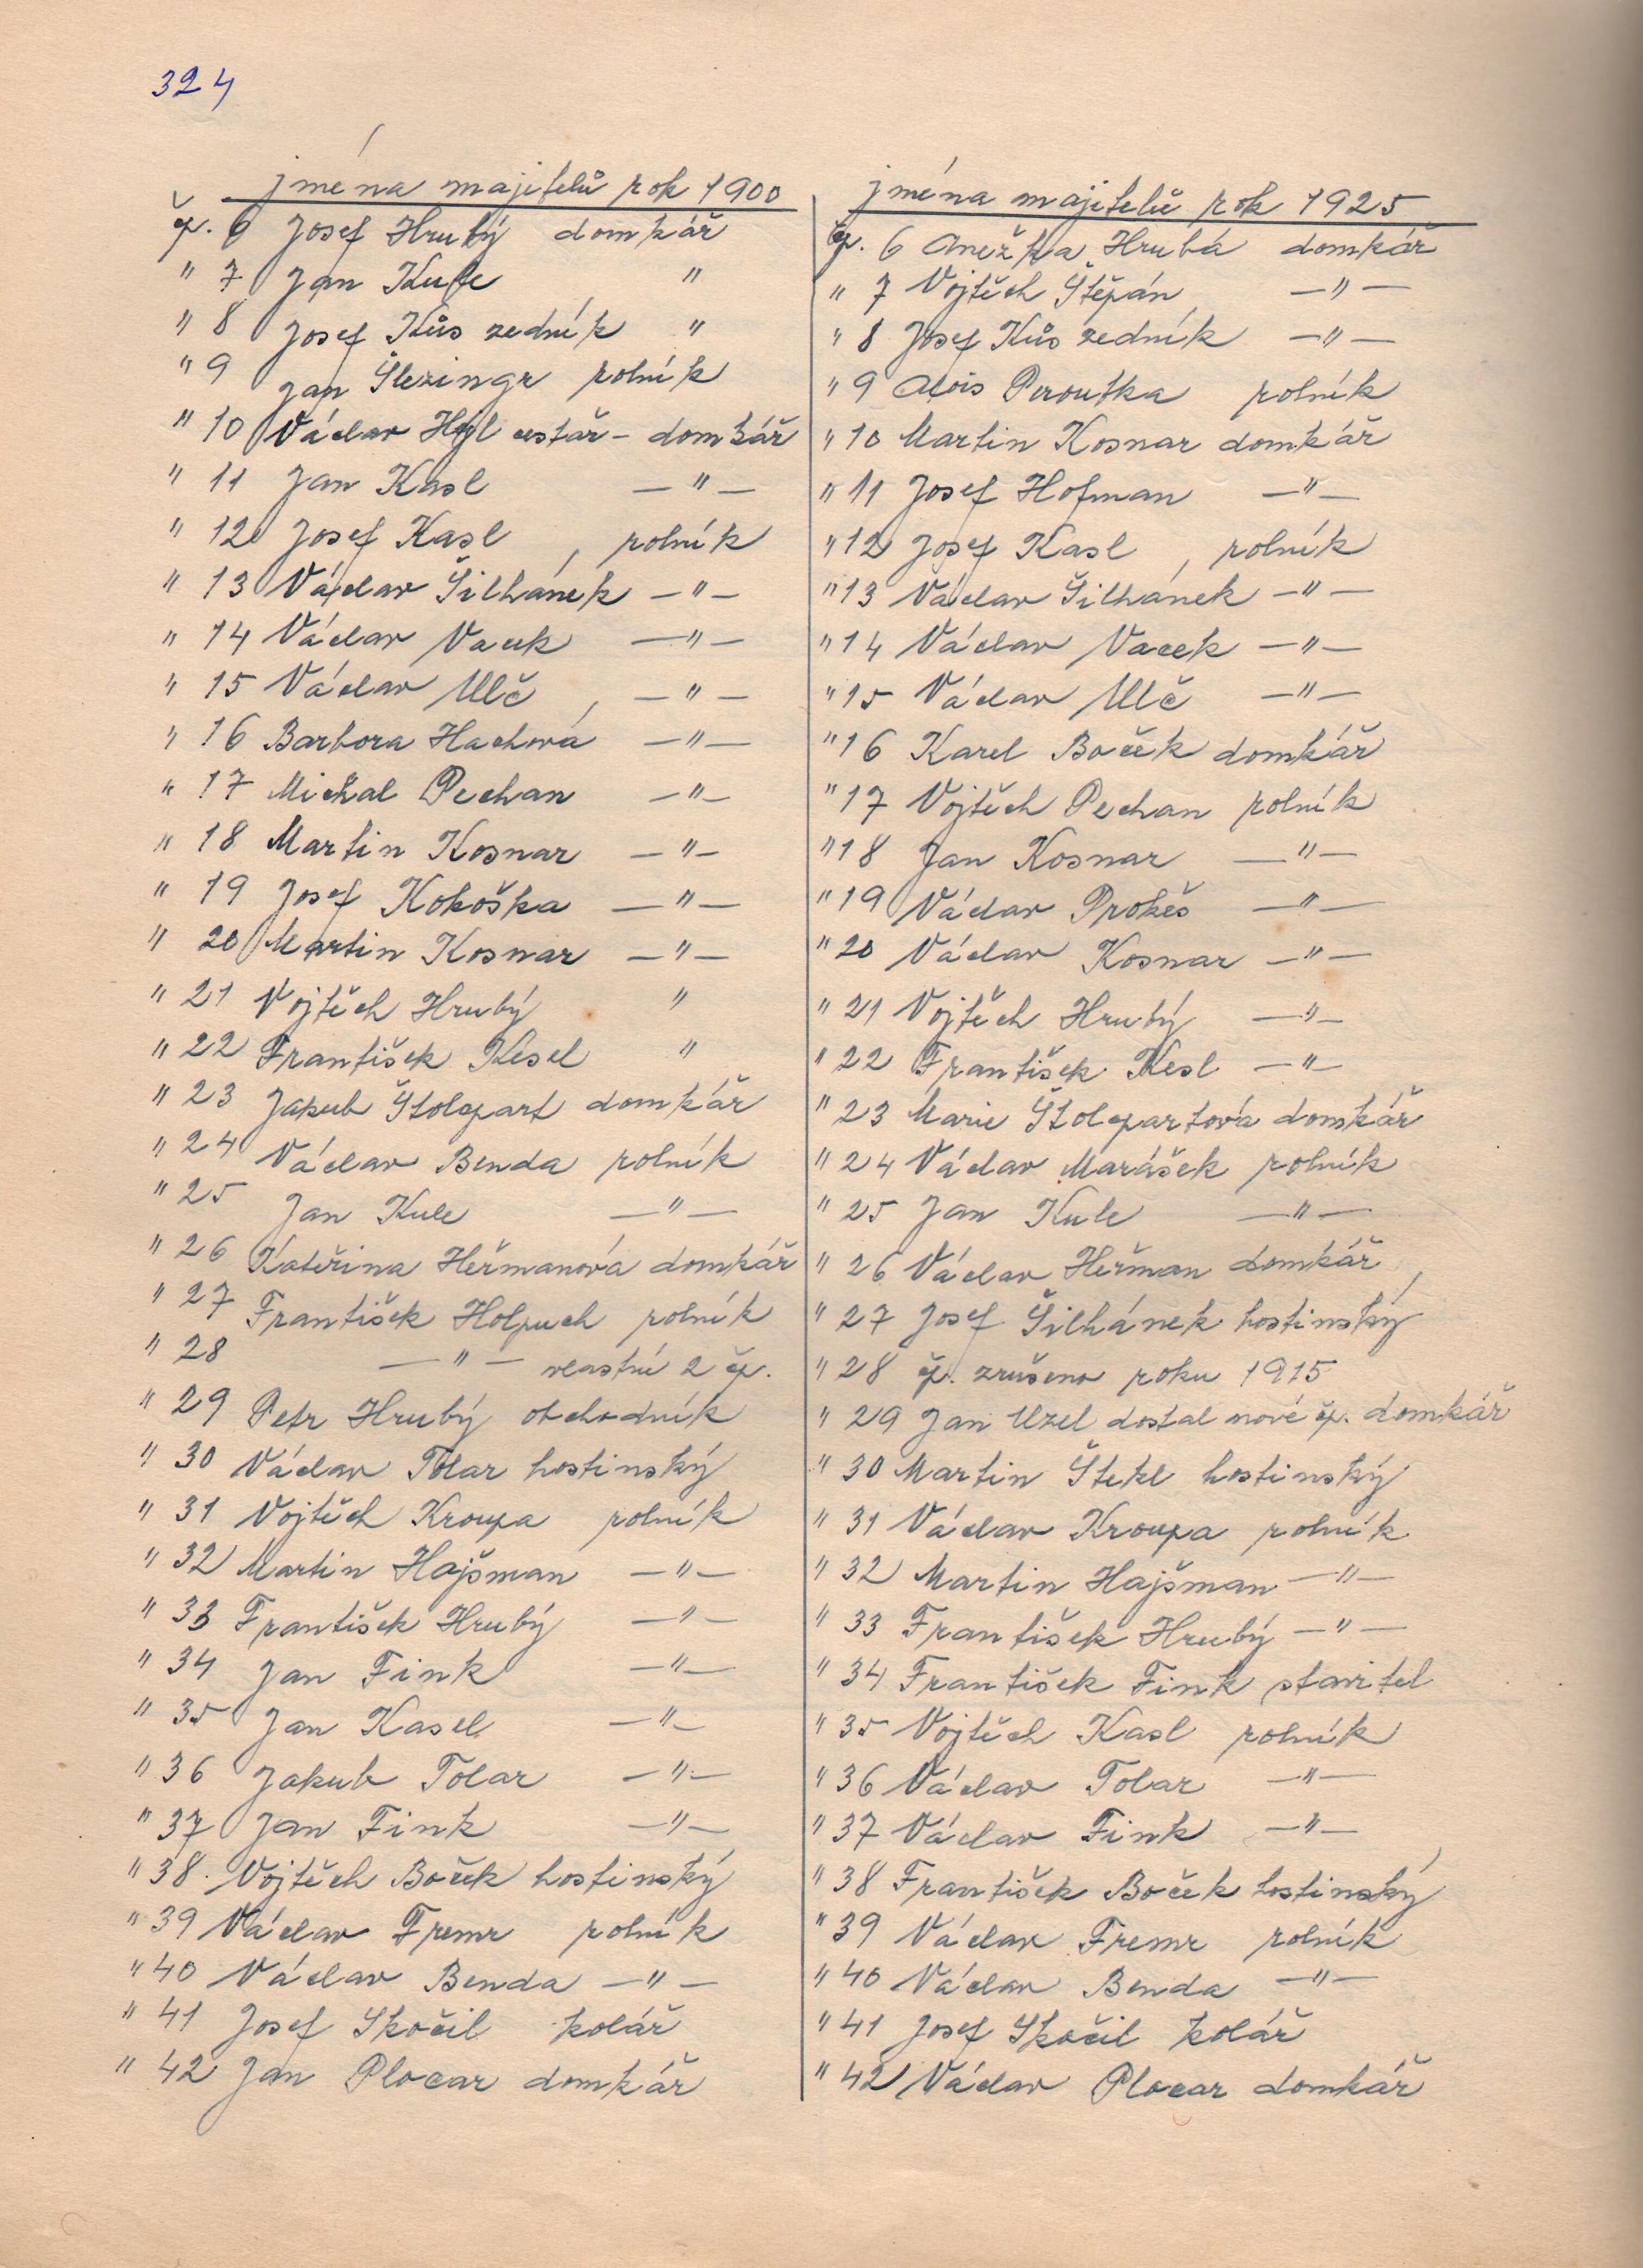 324
jména majitelů rok 1900
čp. 6 Josef Hrubý domkář
" 7 Jan Kule "
" 8 Josef Kůs zedník "
" 9 Jan Šlezingr rolník
" 10 Václav Hýl cestář - domkář
" 11 Jan Kasl —"—
" 12 Josef Kasl , rolník
" 13 Václav Šilhánek —"—
" 14 Václav Vacek —"—
" 15 Václav Ulč , —"—
" 16 Barbora Hachová —"—
" 17 Michal Pechan —"—
" 18 Martin Kosnar —"—
" 19 Josef Kokoška —"—
" 20 Martin Kosnar —"—
" 21 Vojtěch Hrubý "
" 22 František Kesel "
" 23 Jakub Štolcpart domkář
" 24 Václav Benda rolník
" 25 Jan Kule —"—
" 26 Kateřina Heřmanová domkář
" 27 František Holpuch rolník
" 28 —"— vlastní 2 čp.
" 29 Petr Hrubý obchodník
" 30 Václav Tolar hostinský
" 31 Vojtěch Kroupa rolník
" 32 Martin Hajšman —"—
" 33 František Hrubý —"—
" 34 Jan Fink —"—
" 35 Jan Kasel —"—
" 36 Jakub Tolar —"—
" 37 Jan Fink —"—
" 38. Vojtěch Boček hostinský
" 39 Václav Fremr rolník
" 40 Václav Benda —"—
" 41 Josef Skočil kolář
" 42 Jan Plocar domkář
jména majitelů rok 1925
čp. 6 Anežka Hrubá domkář
" 7 Vojtěch Štěpán —"—
" 8 Josef Kůs zedník —"—
" 9 Alois Peroutka rolník
" 10 Martin Kosnar domkář
" 11 Josef Hofman —"—
" 12 Josef Kasl , rolník
" 13 Václav Šilhánek —"—
" 14 Václav Vacek —"—
" 15 Václav Ulč —"—
" 16 Karel Boček domkář
" 17 Vojtěch Pechan rolník
" 18 Jan Kosnar —"—
" 19 Václav Prokeš —"—
" 20 Václav Kosnar —"—
" 21 Vojtěch Hrubý —"—
" 22 František Kesl —"—
" 23 Marie Štolcpartová domkář
" 24 Václav Marášek rolník
" 25 Jan Kule —"—
" 26 Václav Heřman domkář
" 27 Josef Šilhánek hostinský
" 28 čp. zrušeno roku 1915
" 29 Jan Uzel dostal nové čp. domkář
" 30 Martin Štekl hostinský
" 31 Václav Kroupa rolník
" 32 Martin Hajšman —"—
" 33 František Hrubý —"—
" 34 František Fink stavitel
" 35 Vojtěch Kasl rolník
" 36 Václav Tolar —"—
" 37 Václav Fink —"—
" 38 František Boček hostinský
" 39 Václav Fremr rolník
" 40 Václav Benda —"—
" 41 Josef Skočil kolář
" 42 Václav Plocar domkář